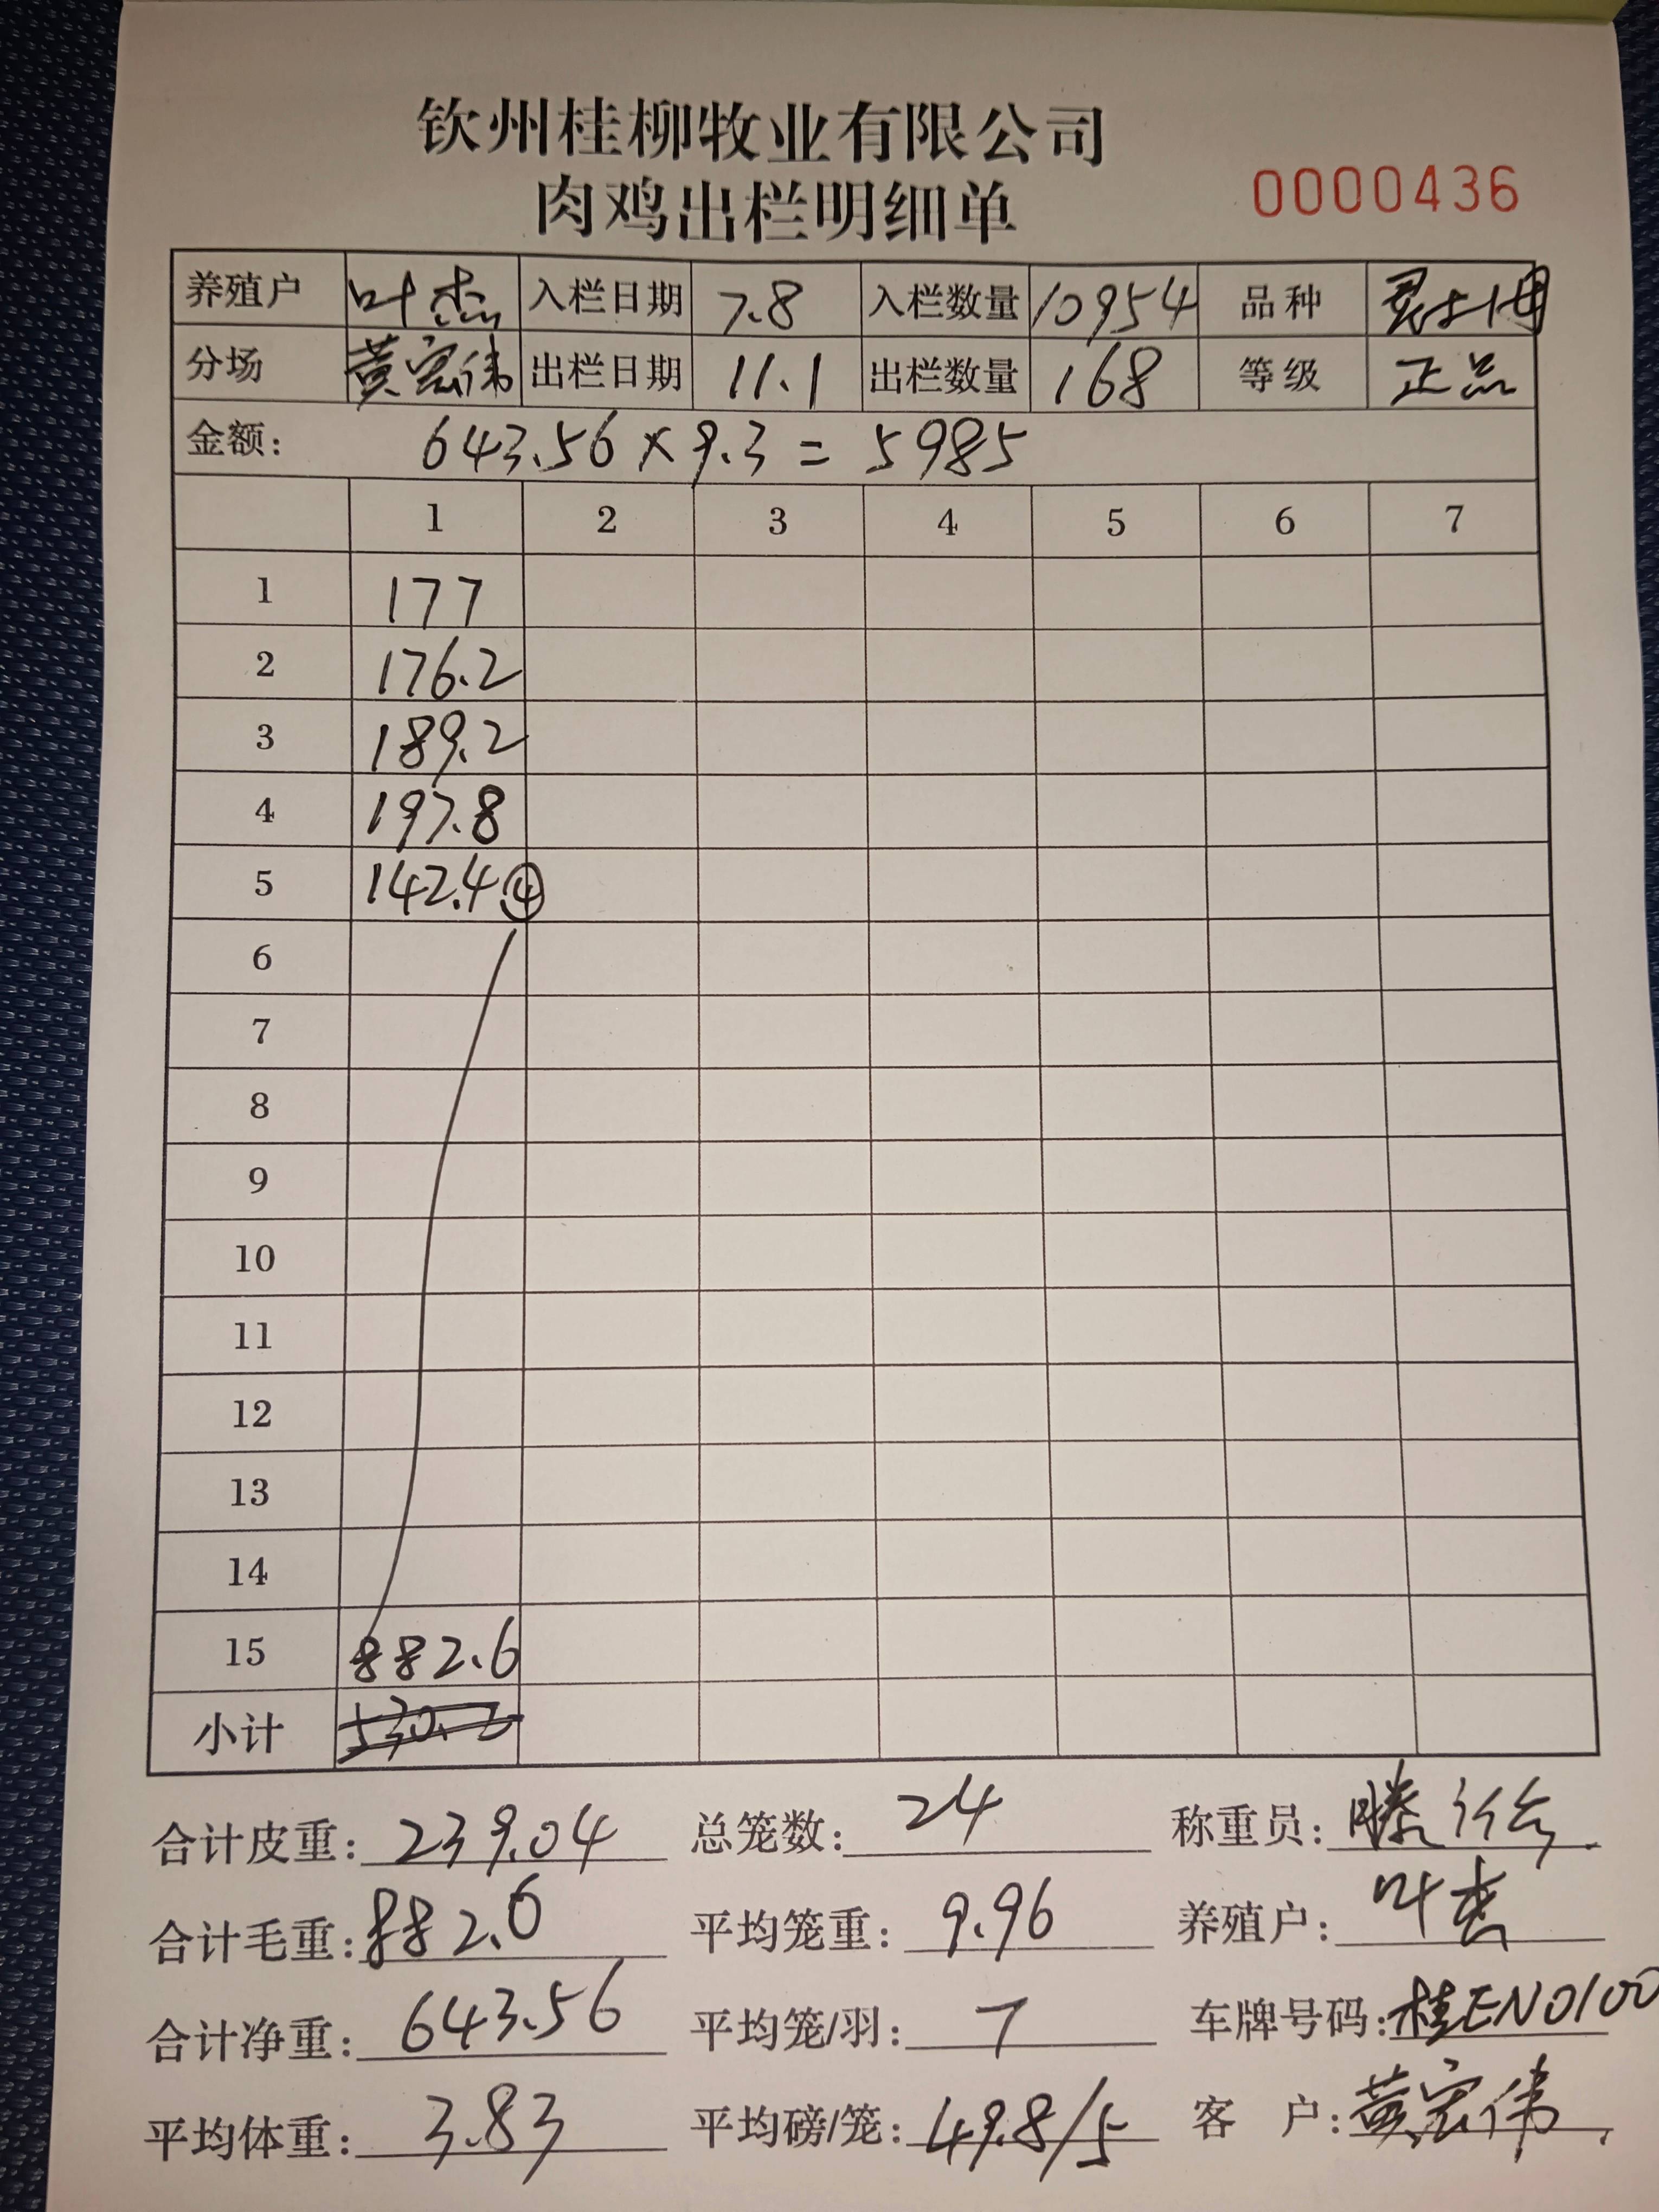 钦州桂柳牧业有限公司
肉鸡出栏明细单 0000436
养殖户 叶杰 入栏日期 7.8 入栏数量 10954 品种
分场 黄宏伟 出栏日期 11.1 出栏数量 168 等级 正品
金额: 643.56×9.3=5985
1 2 3 4 5 6 7
1 177
2 176.2
3 189.2
4 197.8
5 142.4 ④
6
7
8
9
10
11
12
13
14
15 882.6
小计 530.2
合计皮重: 239.04 总笼数: 24 称重员: 滕
合计毛重: 882.6 平均笼重: 9.96 养殖户: 叶杰
合计净重: 643.56 平均笼/羽: 7 车牌号码: 桂EN0100
平均体重: 3.83 平均磅/笼: 49.8/5 客户: 黄宏伟